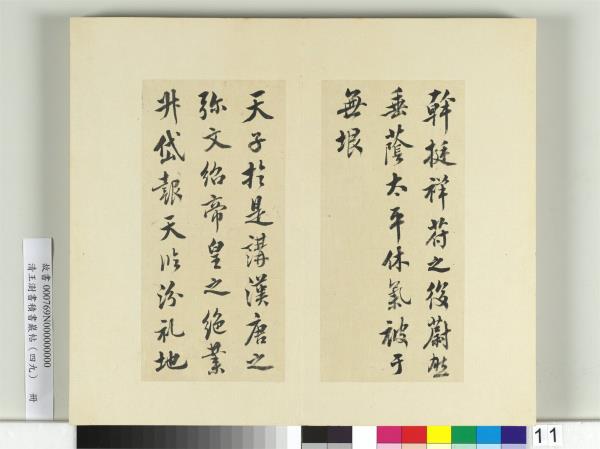 幹挺祥符之後蔚然
垂蔭太平休氣被于
無垠
天子於是講漢唐之
弥文紹帝皇之絶業
升岱報天脽汾礼地
故書 000769N000000000
清王澍書積書巖帖（四九） 冊
11